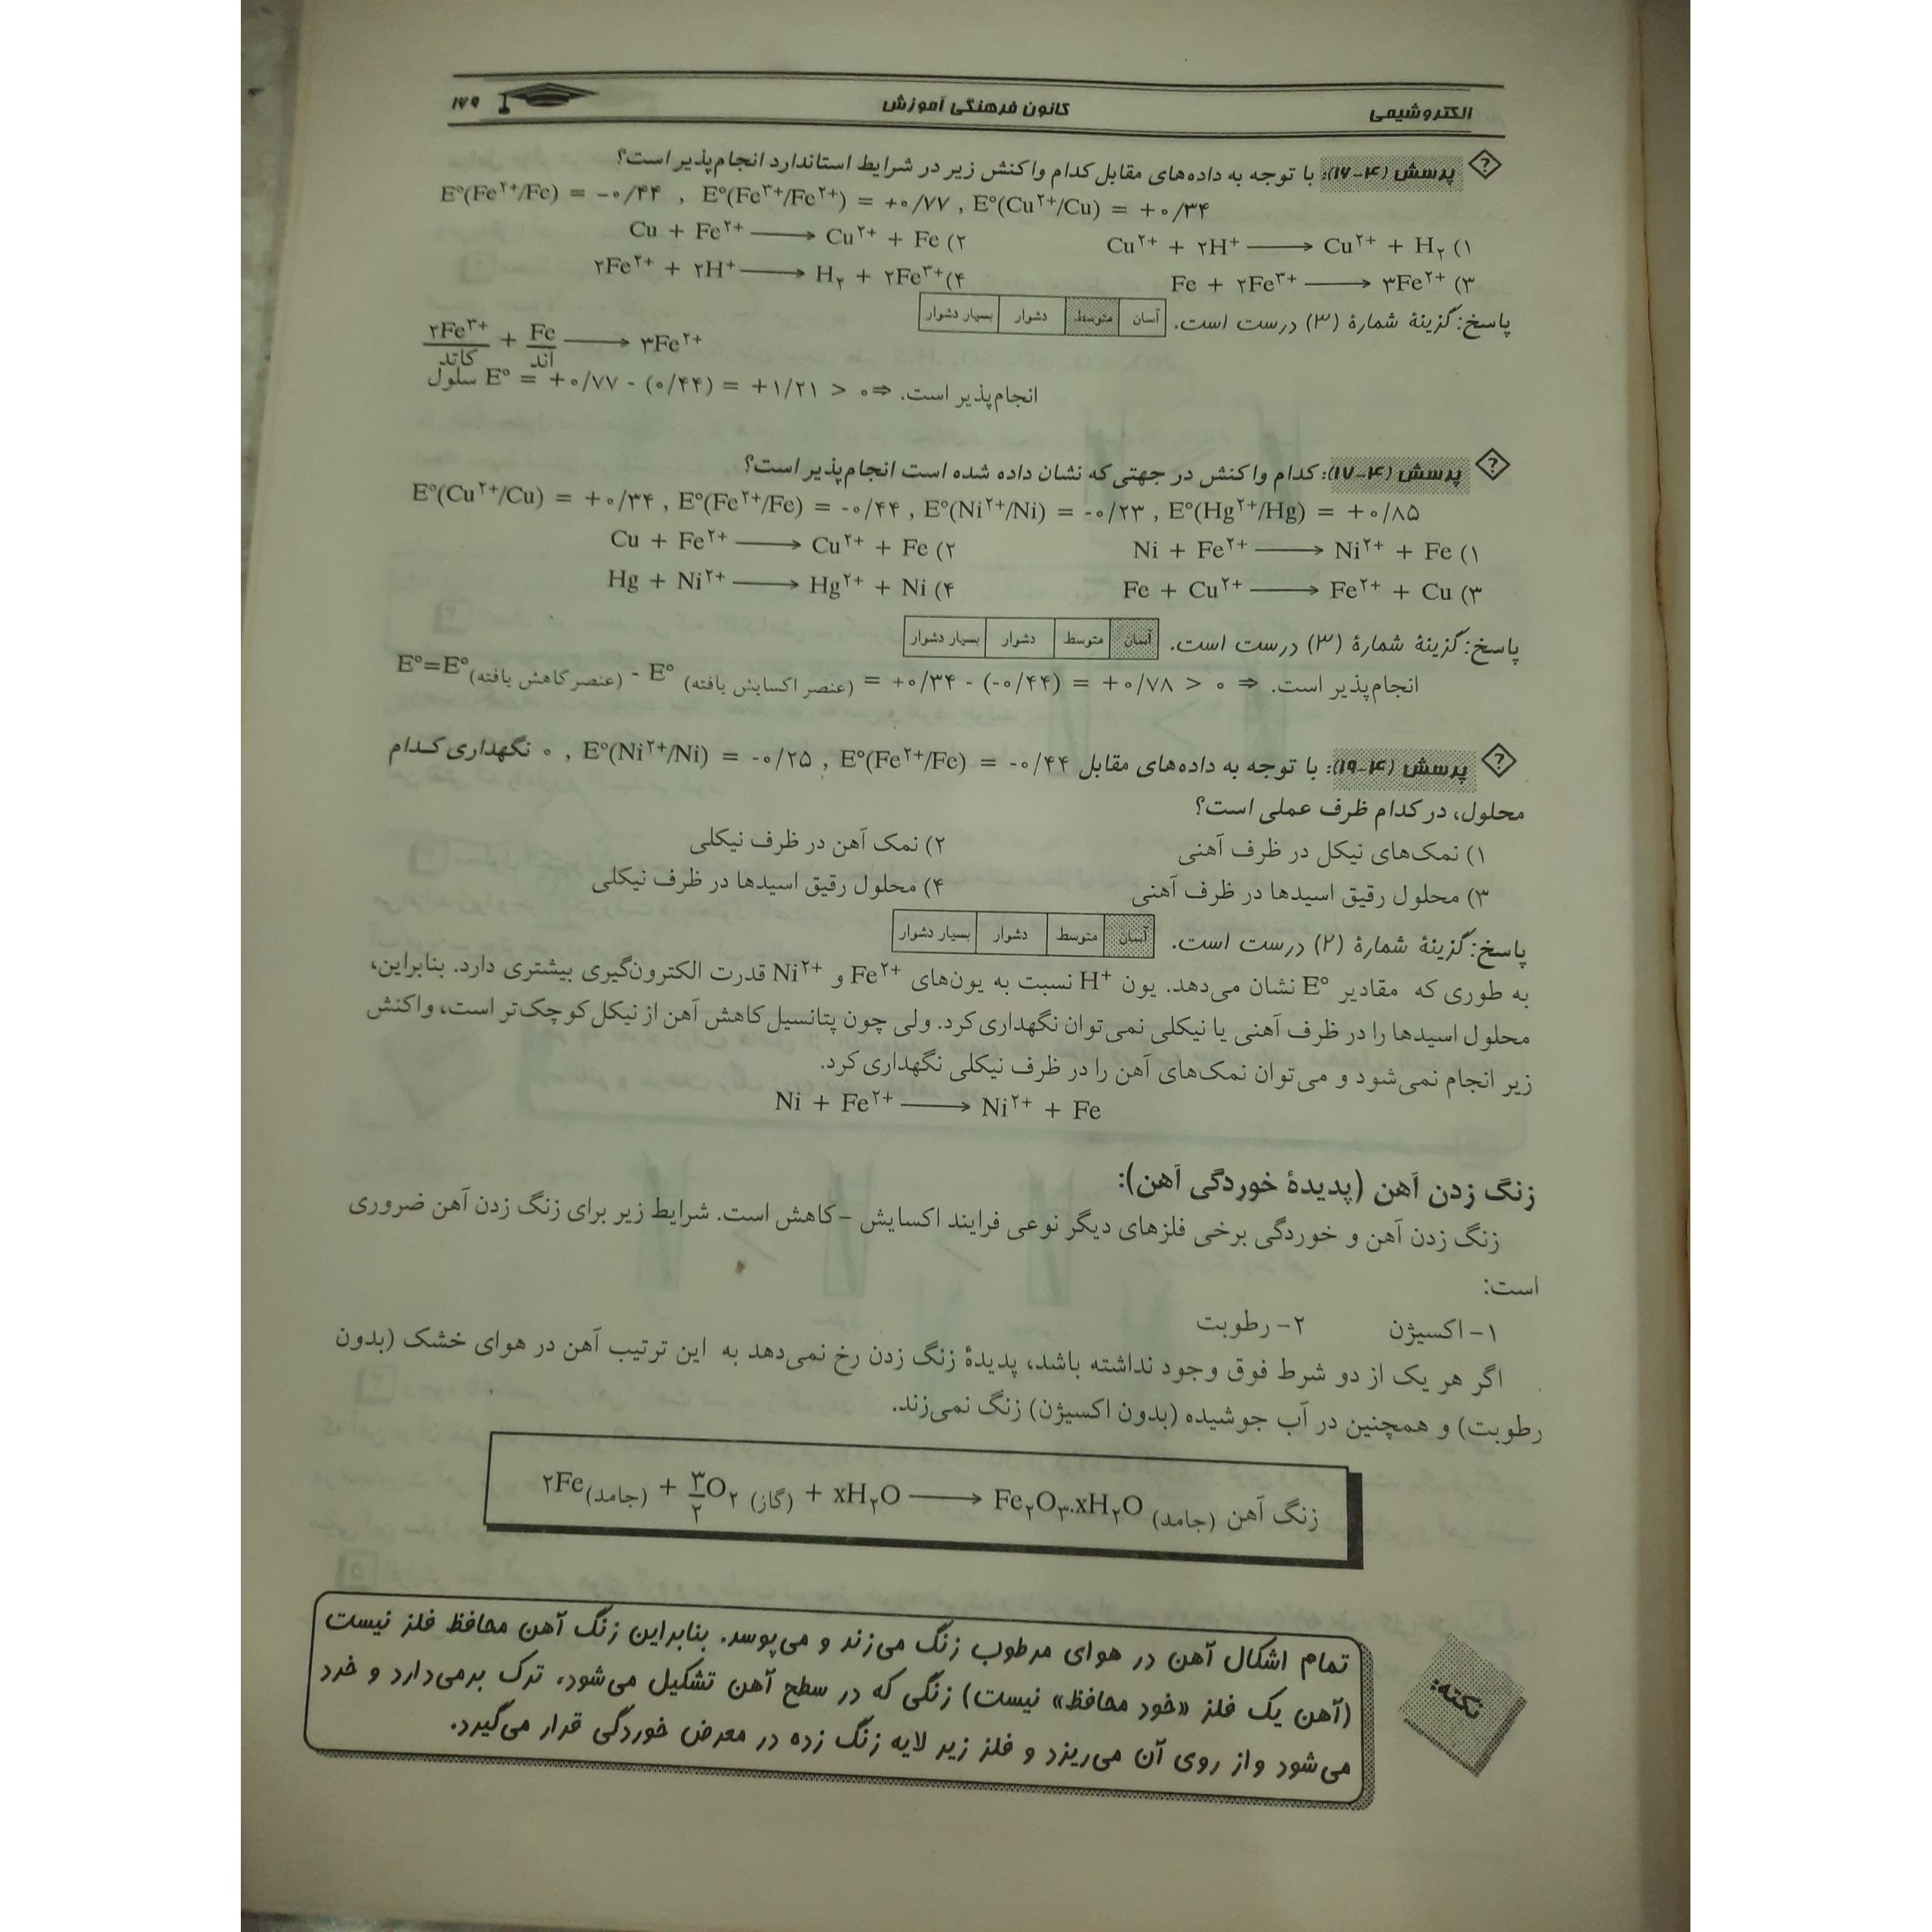 الکتروشیمی کانون فرهنگی آموزش ۱۷۹
پرسش (۴-۱۶): با توجه به داده‌های مقابل کدام واکنش زیر در شرایط استاندارد انجام‌پذیر است؟
E°(Fe²⁺/Fe) = -۰/۴۴ , E°(Fe³⁺/Fe²⁺) = +۰/۷۷ , E°(Cu²⁺/Cu) = +۰/۳۴
۱) Cu²⁺ + ۲H⁺ ⟶ Cu²⁺ + H₂ ۲) Cu + Fe²⁺ ⟶ Cu²⁺ + Fe
۳) Fe + ۲Fe³⁺ ⟶ ۳Fe²⁺ ۴) ۲Fe²⁺ + ۲H⁺ ⟶ H₂ + ۲Fe³⁺
پاسخ: گزینهٔ شمارهٔ (۳) درست است. آسان متوسط دشوار بسیار دشوار
۲Fe³⁺ + Fe ⟶ ۳Fe²⁺
کاتد آند
سلول E° = +۰/۷۷ - (۰/۴۴) = +۱/۲۱ > ۰ ⇒ انجام‌پذیر است.
پرسش (۴-۱۷): کدام واکنش در جهتی که نشان داده شده است انجام‌پذیر است؟
E°(Cu²⁺/Cu) = +۰/۳۴ , E°(Fe²⁺/Fe) = -۰/۴۴ , E°(Ni²⁺/Ni) = -۰/۲۳ , E°(Hg²⁺/Hg) = +۰/۸۵
۱) Ni + Fe²⁺ ⟶ Ni²⁺ + Fe ۲) Cu + Fe²⁺ ⟶ Cu²⁺ + Fe
۳) Fe + Cu²⁺ ⟶ Fe²⁺ + Cu ۴) Hg + Ni²⁺ ⟶ Hg²⁺ + Ni
پاسخ: گزینهٔ شمارهٔ (۳) درست است. آسان متوسط دشوار بسیار دشوار
E°=E°(عنصر کاهش یافته) - E°(عنصر اکسایش یافته) = +۰/۳۴ - (-۰/۴۴) = +۰/۷۸ > ۰ ⇒ انجام‌پذیر است.
پرسش (۴-۱۹): با توجه به داده‌های مقابل E°(Ni²⁺/Ni) = -۰/۲۵ , E°(Fe²⁺/Fe) = -۰/۴۴ , ۰ نگهداری کدام
محلول، در کدام ظرف عملی است؟
۱) نمک‌های نیکل در ظرف آهنی ۲) نمک آهن در ظرف نیکلی
۳) محلول رقیق اسیدها در ظرف آهنی ۴) محلول رقیق اسیدها در ظرف نیکلی
پاسخ: گزینهٔ شمارهٔ (۲) درست است. آسان متوسط دشوار بسیار دشوار
به طوری که مقادیر E° نشان می‌دهد. یون H⁺ نسبت به یون‌های Fe²⁺ و Ni²⁺ قدرت الکترون‌گیری بیشتری دارد. بنابراین،
محلول اسیدها را در ظرف آهنی یا نیکلی نمی‌توان نگهداری کرد. ولی چون پتانسیل کاهش آهن از نیکل کوچک‌تر است، واکنش
زیر انجام نمی‌شود و می‌توان نمک‌های آهن را در ظرف نیکلی نگهداری کرد.
Ni + Fe²⁺ ⟶ Ni²⁺ + Fe
زنگ زدن آهن (پدیدهٔ خوردگی آهن):
زنگ زدن آهن و خوردگی برخی فلزهای دیگر نوعی فرایند اکسایش -کاهش است. شرایط زیر برای زنگ زدن آهن ضروری
است:
۱- اکسیژن ۲- رطوبت
اگر هر یک از دو شرط فوق وجود نداشته باشد، پدیدهٔ زنگ زدن رخ نمی‌دهد به این ترتیب آهن در هوای خشک (بدون
رطوبت) و همچنین در آب جوشیده (بدون اکسیژن) زنگ نمی‌زند.
۲Fe(جامد) + ۳/۲O₂ (گاز) + xH₂O ⟶ Fe₂O₃.xH₂O (جامد) زنگ آهن
نکته:
تمام اشکال آهن در هوای مرطوب زنگ می‌زند و می‌پوسد. بنابراین زنگ آهن محافظ فلز نیست
(آهن یک فلز «خود محافظ» نیست) زنگی که در سطح آهن تشکیل می‌شود، ترک برمی‌دارد و خرد
می‌شود و از روی آن می‌ریزد و فلز زیر لایه زنگ زده در معرض خوردگی قرار می‌گیرد.